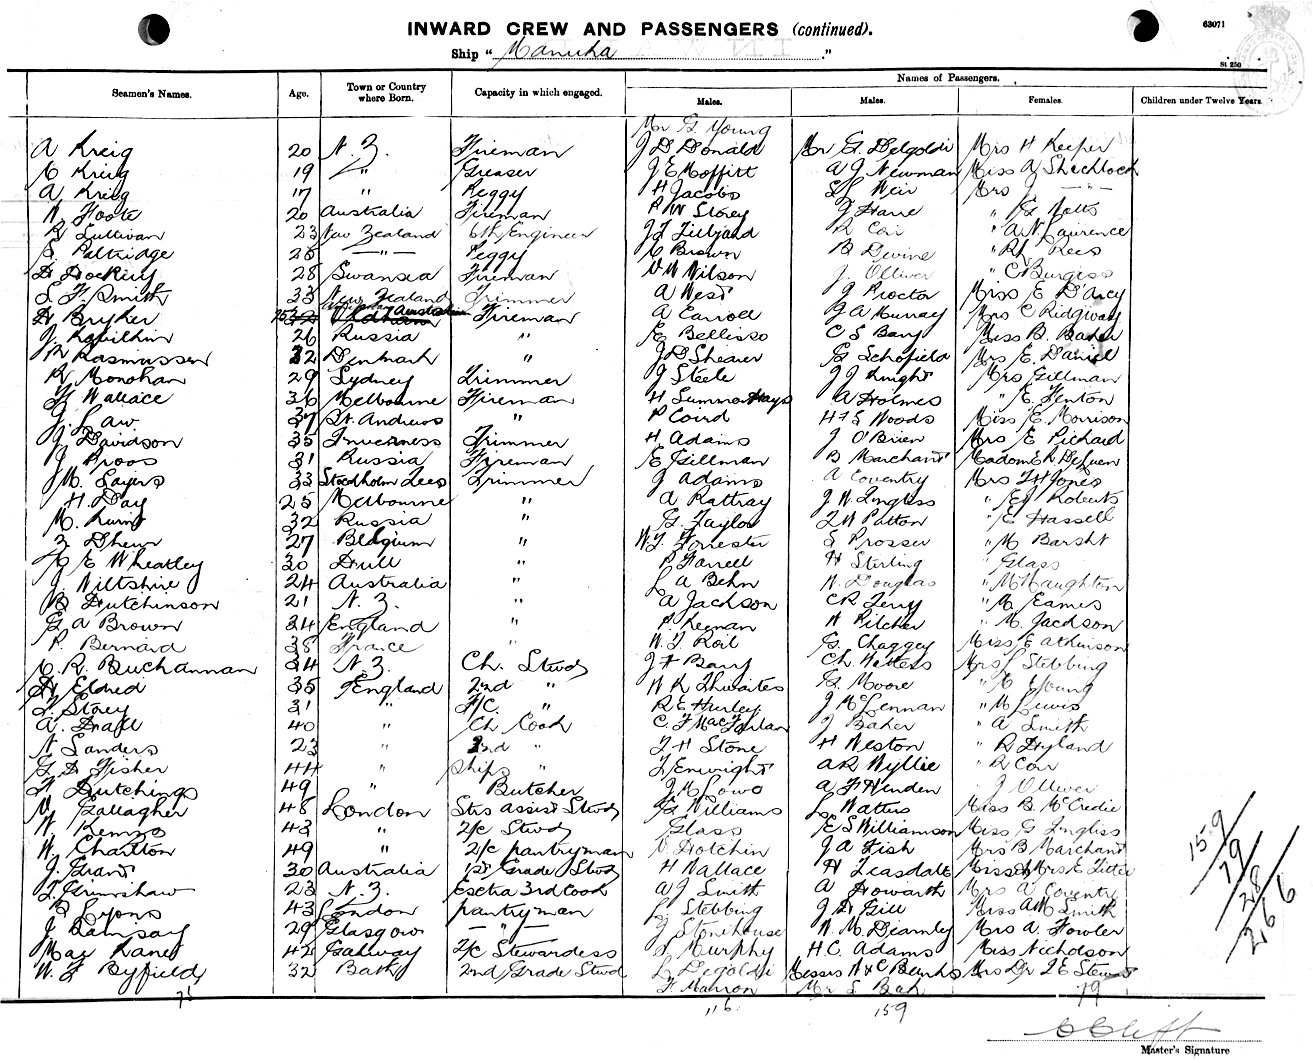 INWARD CREW AND PASSENGERS (continued).
63071
Ship "Manuka"
St 250
Names of Passengers.
Seamen's Names. Age. Town or Country where Born. Capacity in which engaged. Males. Males. Females. Children under Twelve Years.
Mr G. Young
A Kreig 20 N.Z. Fireman J D Donald Mr G. Delgoldi Mrs H Keefer
C Kreig 19 " Greaser J E Moffitt A J Newman Miss A Shecklock
A Kreig 17 " Peggy H Jacobs Weir Mrs J —"—
W Foote 20 Australia Fireman P W Storey J Harre " G Notts
R Sullivan 23 New Zealand 6th Engineer J T Tilyard R Coir " A N Laurence
S. Paltridge 28 —"— Peggy C Brown B Devine " Rees
D Docking 28 Swansea Fireman V W Wilson J. Olliver " C Burgiss
S F Smith 33 New Zealand Trimmer A West J Proctor Miss E D'Arcy
H Bryker Australia Fireman A Carroll J A Murray Mrs C Ridgway
J 26 Russia " E Bellisso C S Bary Miss B. Baker
N Rasmussen 32 Denmark " J D Shearer G Schofield Mrs E. Daniel
R Monohan 29 Sydney Trimmer J Steele J J Knight Mrs Gillman
F Wallace 36 Melbourne Fireman H Summerhays A Holmes " E Fenton
J. Law 37 St. Andrews " P Coird H F S Woods Miss E. Morrison
J Davidson 35 Inverness Trimmer H Adams J O'Brien Mrs E Pichard
J Proos 31 Russia Fireman E Gillman B Marchant Madom E R Defuen
J M. Sayers 33 Stockholm Lees Trimmer J Adams A Coventry Mrs T H Jones
H Day 25 Melbourne " A Rattray J W Lingliss " E J Roberts
M. 32 Russia " G. Taylor T W Patton " E Hassell
27 Belgium " W J Forrester S Prosser " M Barsht
H E Wheatley 30 Deull " P Farrell H Stirling " Glass
J Wiltshire 24 Australia " L A Behn W Douglas " McNaughton
B Hutchinson 21 N.Z. " A Jackson C R Terry " M Eames
G A Brown 34 England " P. Keenan W Pilcher " M. Jackson
P. Bernard 38 France " W. J. Roil G. Chaggey Miss E Atkinson
C. R. Buchannan 34 N.Z. Ch. Stwd J F Barry Ch. Watters Mrs J Stebbing
H Eldred 35 England 2nd " W R Thwaites G Moore " K Young
F. Storey 31 " F/C. " R E Hurley J McLennan " M Lewis
A. Draft 40 " Ch Cook C. F MacFarlan J Baker " A Smith
N Sanders 23 " 2nd " T H Stone H Weston " R Hyland
F D Fisher 44 " Ships " T Enwright A R Wyllie " R Coir
F Hutchings 49 " Butcher J M Lowo A F Henden " J Olliver
V Gallagher 48 London Strs assist Stwd G Williams L Watters Miss B McCredie
W. Kemms 43 " 2/c Stwd Glass E S Williamson Miss G Lingliss
W. Charlton 49 " 2/c pantryman V Hotchin J A Fish Mrs B Marchant
J. Grant 30 Australia 1st Grade Stwd H Wallace H Teasdale Miss & Mrs E Titter
T. Grimshaw 23 N.Z. Esctra 3rd Cook A J Smith A Howarth Mrs A Coventry
B Lyons 43 London pantryman L Stebbing J D Gill Miss A M Smith
J Ramsay 29 Glasgow —"— J Stonehouse W. M. Dearnly Mrs A Fowler
May Lane 42 Galway 2/c Stewardess J Murphy H C. Adams Miss Nicholson
W. F Byfield 32 Bath 2nd Grade Stwd L Degoldi Messrs H & C Banks Mrs Dr T E Stewart
F Marron Mr S. Bah
75 116 159 79
159
79
28
266
C Clift
Master's Signature